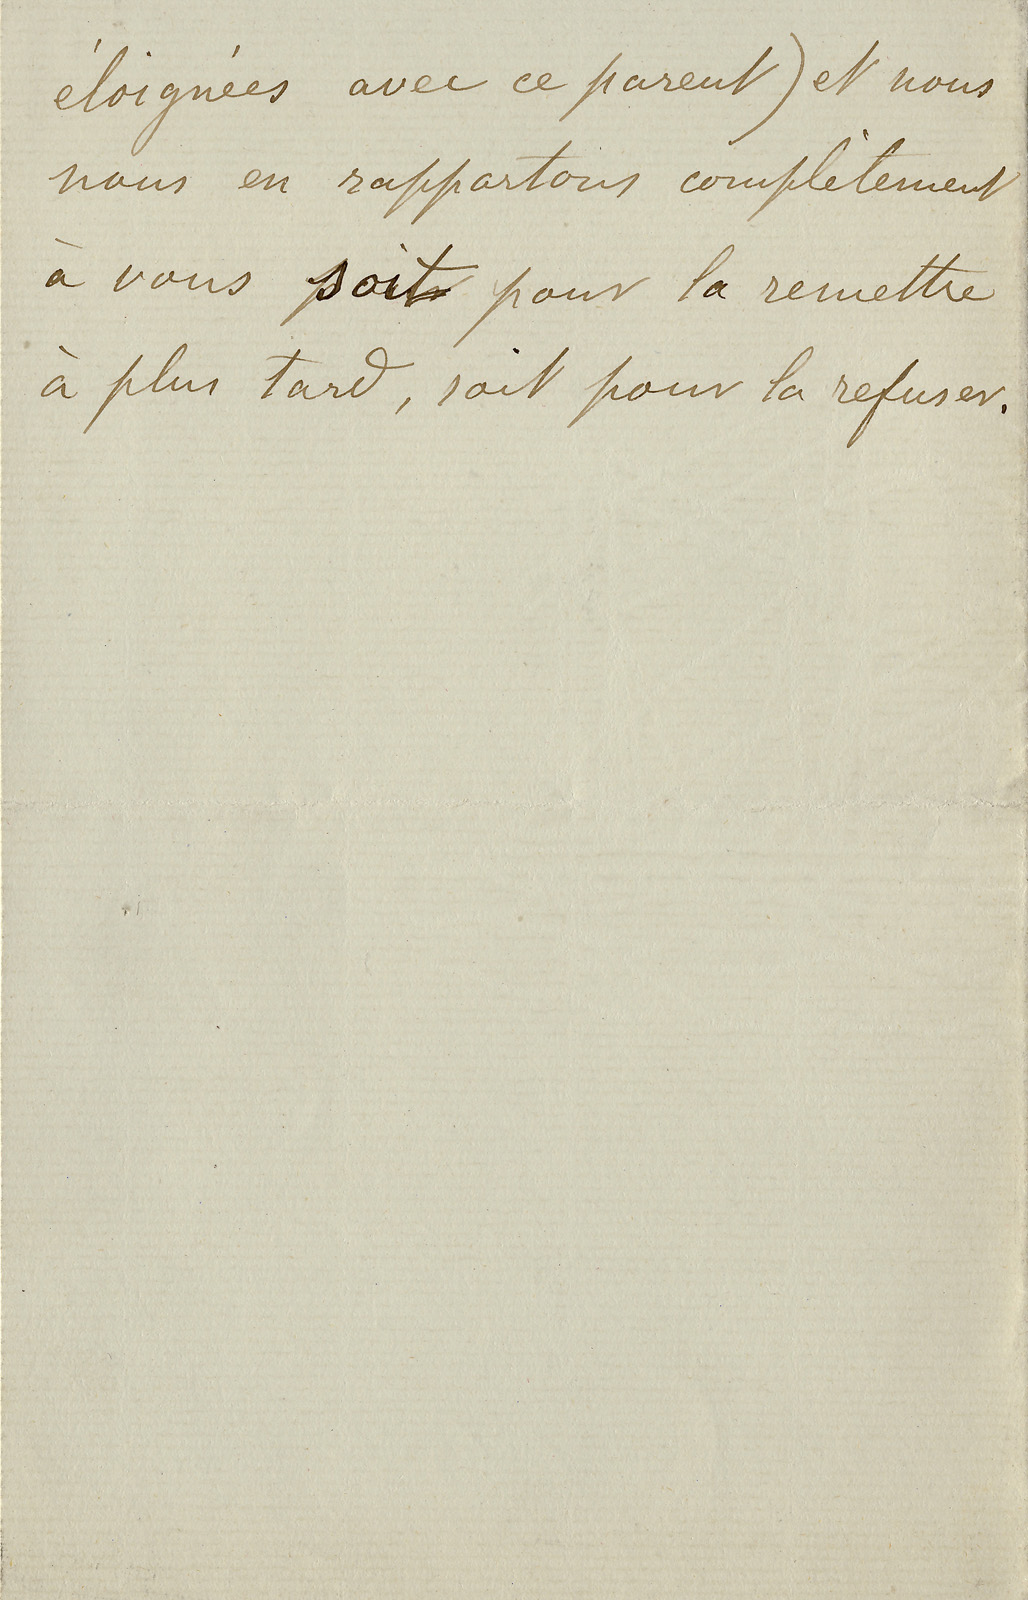 éloignées avec ce parent) et nous
nous en rapportons complètement
à vous soit pour la remettre
à plus tard, soit pour la refuser.